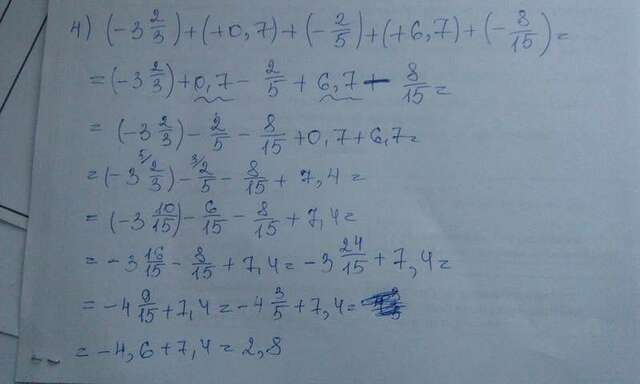 4) (-3 2/3) + (+0,7) + (-2/5) + (+6,7) + (-8/15) =
= (-3 2/3) + 0,7 - 2/5 + 6,7 - 8/15 =
= (-3 2/3) - 2/5 - 8/15 + 0,7 + 6,7 =
= (-3 5/ 2/3) - 3/ 2/5 - 8/15 + 7,4 =
= (-3 10/15) - 6/15 - 8/15 + 7,4 =
= -3 16/15 - 8/15 + 7,4 = -3 24/15 + 7,4 =
= -4 9/15 + 7,4 = -4 3/5 + 7,4 =
= -4,6 + 7,4 = 2,8